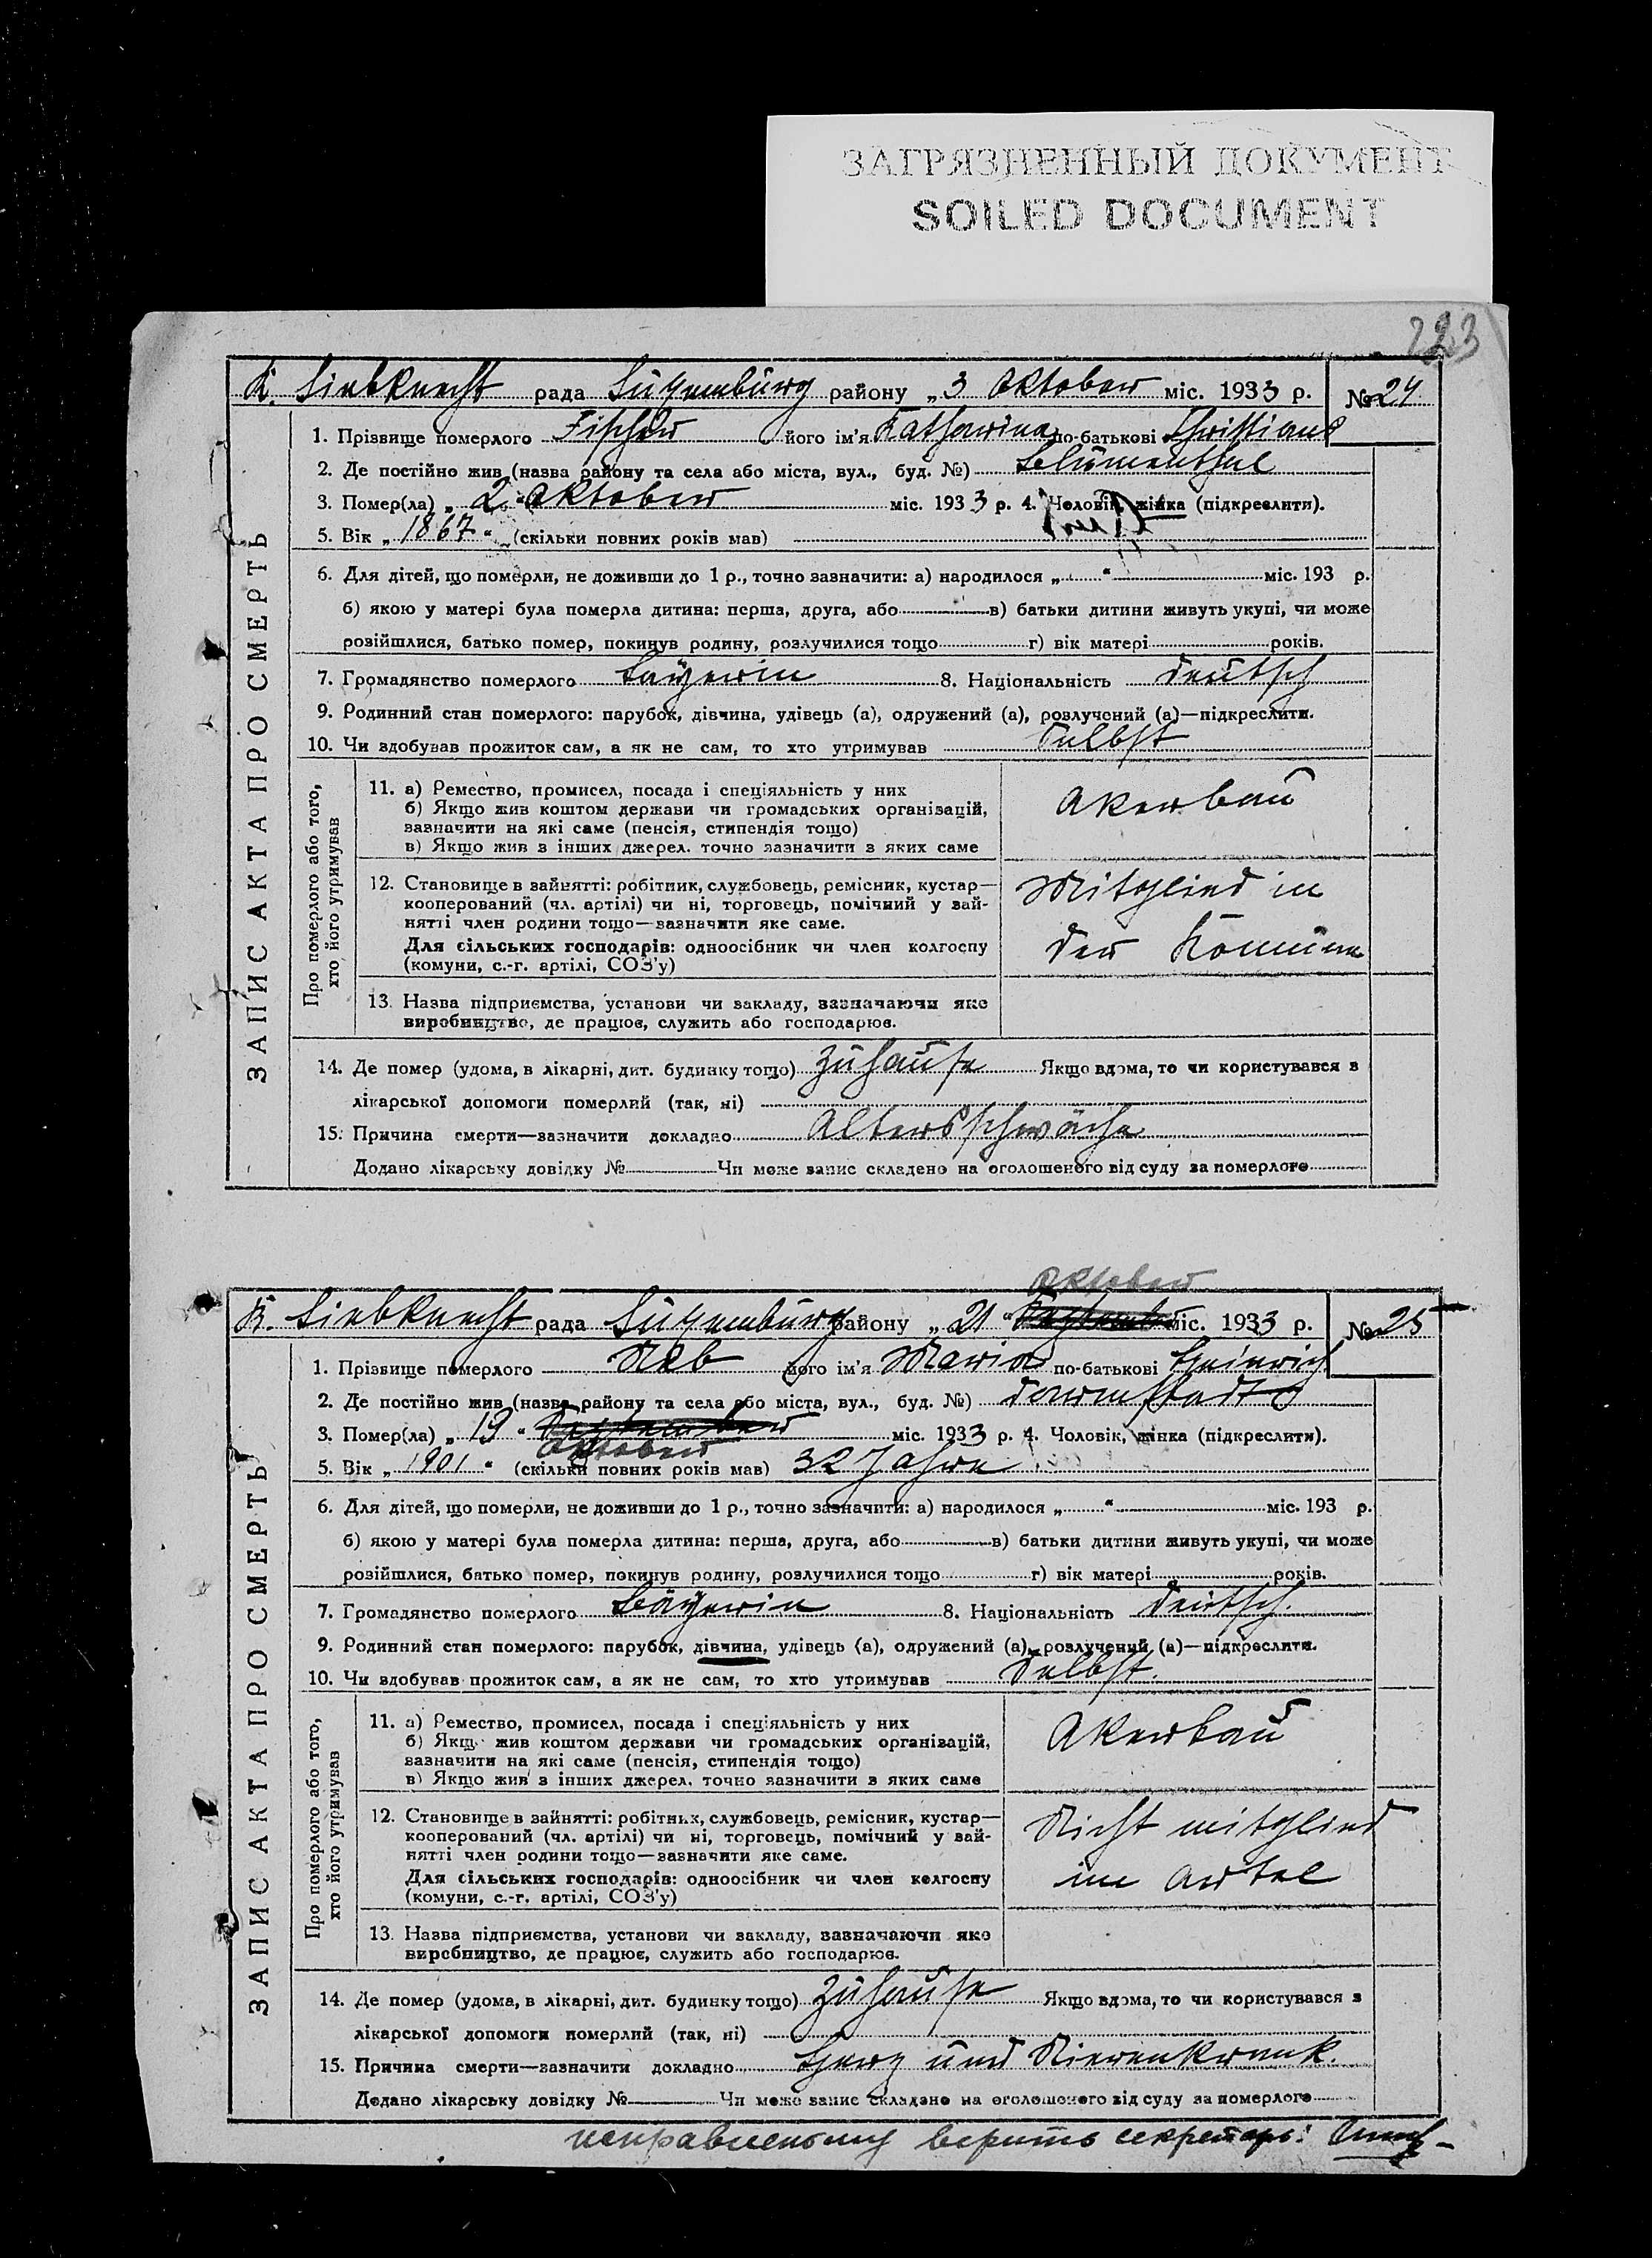 ЗАГРЯЗНЕННЫЙ ДОКУМЕНТ
SOILED DOCUMENT
223
K. Liebknecht рада Luxemburg району „3 Oktober міс. 1933 р. № 24
1. Прізвище померлого Fischer його ім'я Katharina по-батькові Christians
2. Де постійно жив (назва району та села або міста, вул., буд. №) Blumenthal
3. Помер(ла) „ 2 " Oktober міс. 1933 р. 4. Чоловік, жінка (підкреслити).
5. Вік „ 1867 " (скільки повних років мав)
6. Для дітей, що померли, не доживши до 1 р., точно зазначити: а) народилося „ " міс. 193 р.
б) якою у матері була померла дитина: перша, друга, або в) батьки дитини живуть укупі, чи може
розійшлися, батько помер, покинув родину, розлучилися тощо г) вік матері років.
7. Громадянство померлого Bäyerin 8. Національність deutsch
9. Родинний стан померлого: парубок, дівчина, удівець (а), одружений (а), розлучений (а)—підкреслити.
10. Чи здобував прожиток сам, а як не сам, то хто утримував Selbst
ЗАПИС АКТА ПРО СМЕРТЬ
Про померлого або того,
хто його утримував
11. а) Ремество, промисел, посада і спеціяльність у них
б) Якщо жив коштом держави чи громадських організацій,
зазначити на які саме (пенсія, стипендія тощо)
в) Якщо жив з інших джерел, точно зазначити з яких саме
Akerbau
12. Становище в зайнятті: робітник, службовець, ремісник, кустар—
кооперований (чл. артілі) чи ні, торговець, помічний у зай-
нятті член родини тощо—зазначити яке саме.
Для сільських господарів: одноосібник чи член колгоспу
(комуни, с.-г. артілі, СОЗ'у)
Mitglied in
der Komune
13. Назва підприємства, установи чи закладу, зазначаючи яке
виробництво, де працює, служить або господарює.
14. Де помер (удома, в лікарні, дит. будинку тощо) zuhause Якщо вдома, то чи користувався з
лікарської допомоги померлий (так, ні)
15. Причина смерти—зазначити докладно Altersschwäche
Додано лікарську довідку № Чи може запис складено на оголошеного від суду за померлого
Oktober
K. Liebknecht рада Luxemburg району „ 21 " міс. 1933 р. № 25
1. Прізвище померлого Reb його ім'я Maria по-батькові Heinrich
2. Де постійно жив (назва району та села або міста, вул., буд. №) Darmstadt
3. Помер(ла) „ 19 " міс. 1933 р. 4. Чоловік, жінка (підкреслити).
Oktober
5. Вік „ 1901 " (скільки повних років мав) 32 Jahre
6. Для дітей, що померли, не доживши до 1 р., точно зазначити: а) народилося „ " міс. 193 р.
б) якою у матері була померла дитина: перша, друга, або в) батьки дитини живуть укупі, чи може
розійшлися, батько помер, покинув родину, розлучилися тощо г) вік матері років.
7. Громадянство померлого Bäyerin 8. Національність deutsch.
9. Родинний стан померлого: парубок, дівчина, удівець (а), одружений (а), розлучений (а)—підкреслити.
10. Чи здобував прожиток сам, а як не сам, то хто утримував Selbst.
ЗАПИС АКТА ПРО СМЕРТЬ
Про померлого або того,
хто його утримував
11. а) Ремество, промисел, посада і спеціяльність у них
б) Якщо жив коштом держави чи громадських організацій,
зазначити на які саме (пенсія, стипендія тощо)
в) Якщо жив з інших джерел, точно зазначити з яких саме
Akerbau
12. Становище в зайнятті: робітник, службовець, ремісник, кустар—
кооперований (чл. артілі) чи ні, торговець, помічний у зай-
нятті член родини тощо—зазначити яке саме.
Для сільських господарів: одноосібник чи член колгоспу
(комуни, с.-г. артілі, СОЗ'у)
Nicht mitglied
im Artel
13. Назва підприємства, установи чи закладу, зазначаючи яке
виробництво, де працює, служить або господарює.
14. Де помер (удома, в лікарні, дит. будинку тощо) zuhause Якщо вдома, то чи користувався з
лікарської допомоги померлий (так, ні)
15. Причина смерти—зазначити докладно Herz und Nierenkrank.
Додано лікарську довідку № Чи може запис складено на оголошеного від суду за померлого
исправленому верить секретарь: